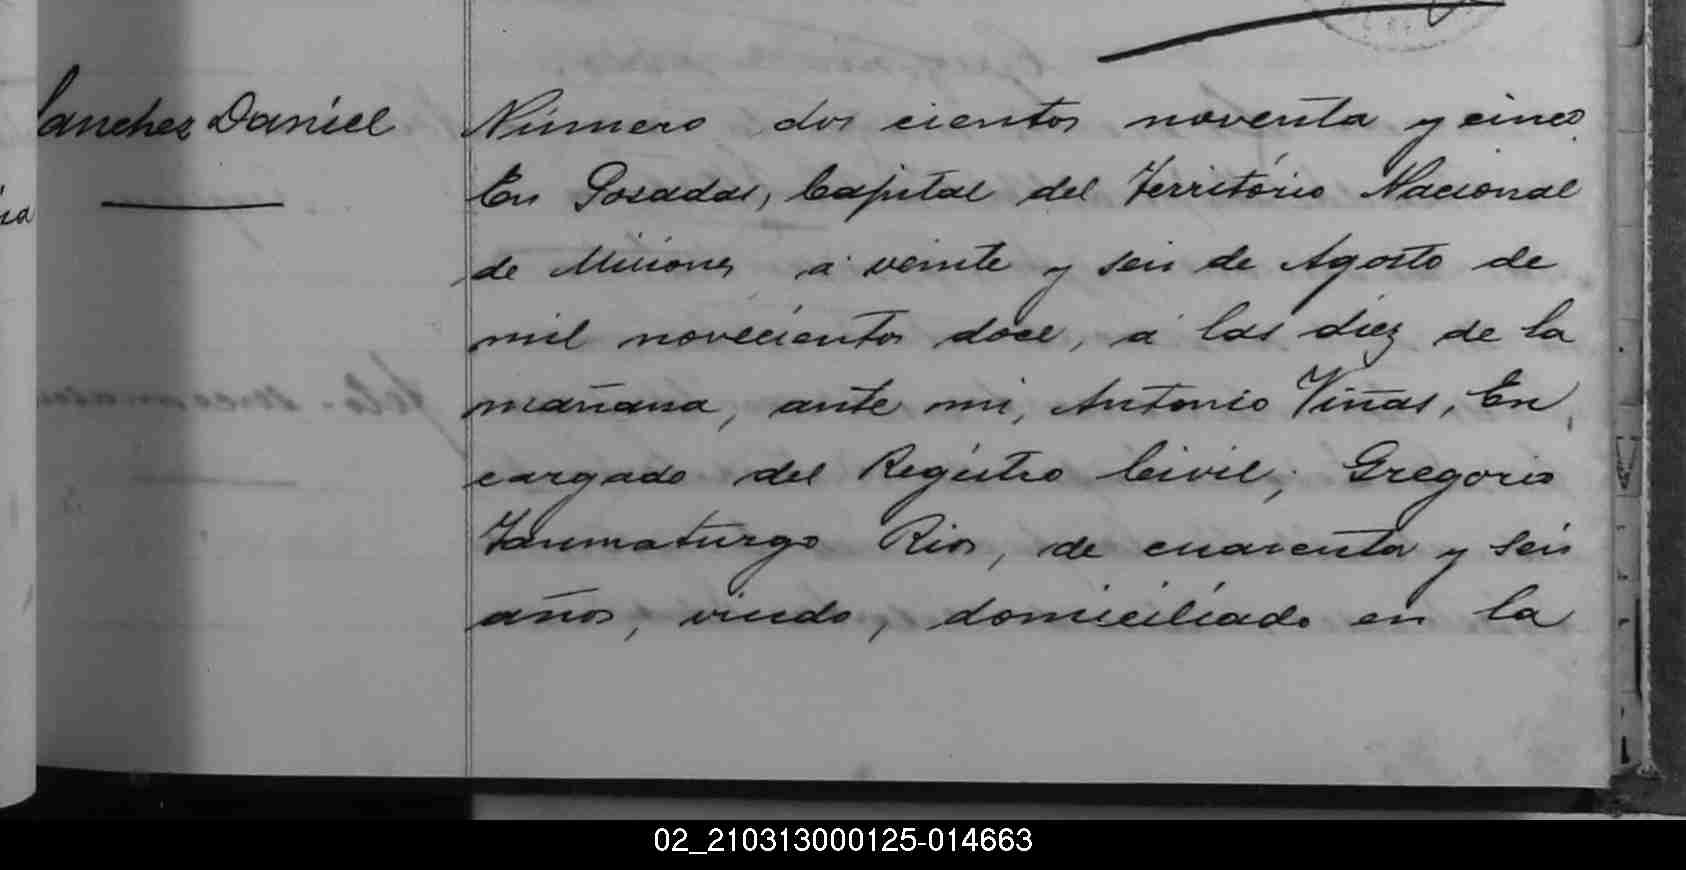 Sanchez Daniel
Número dos cientos noventa y cinco
En Posadas, Capital del Território Nacional
de Misiones á veinte y seis de Agosto de
mil novecientos doce, á las diez de la
mañana, ante mi, Antonio Viñas, En
cargado del Registro Civil, Gregorio
Taumaturgo Rios, de cuarenta y seis
años, viudo, domiciliado en la
02_210313000125-014663